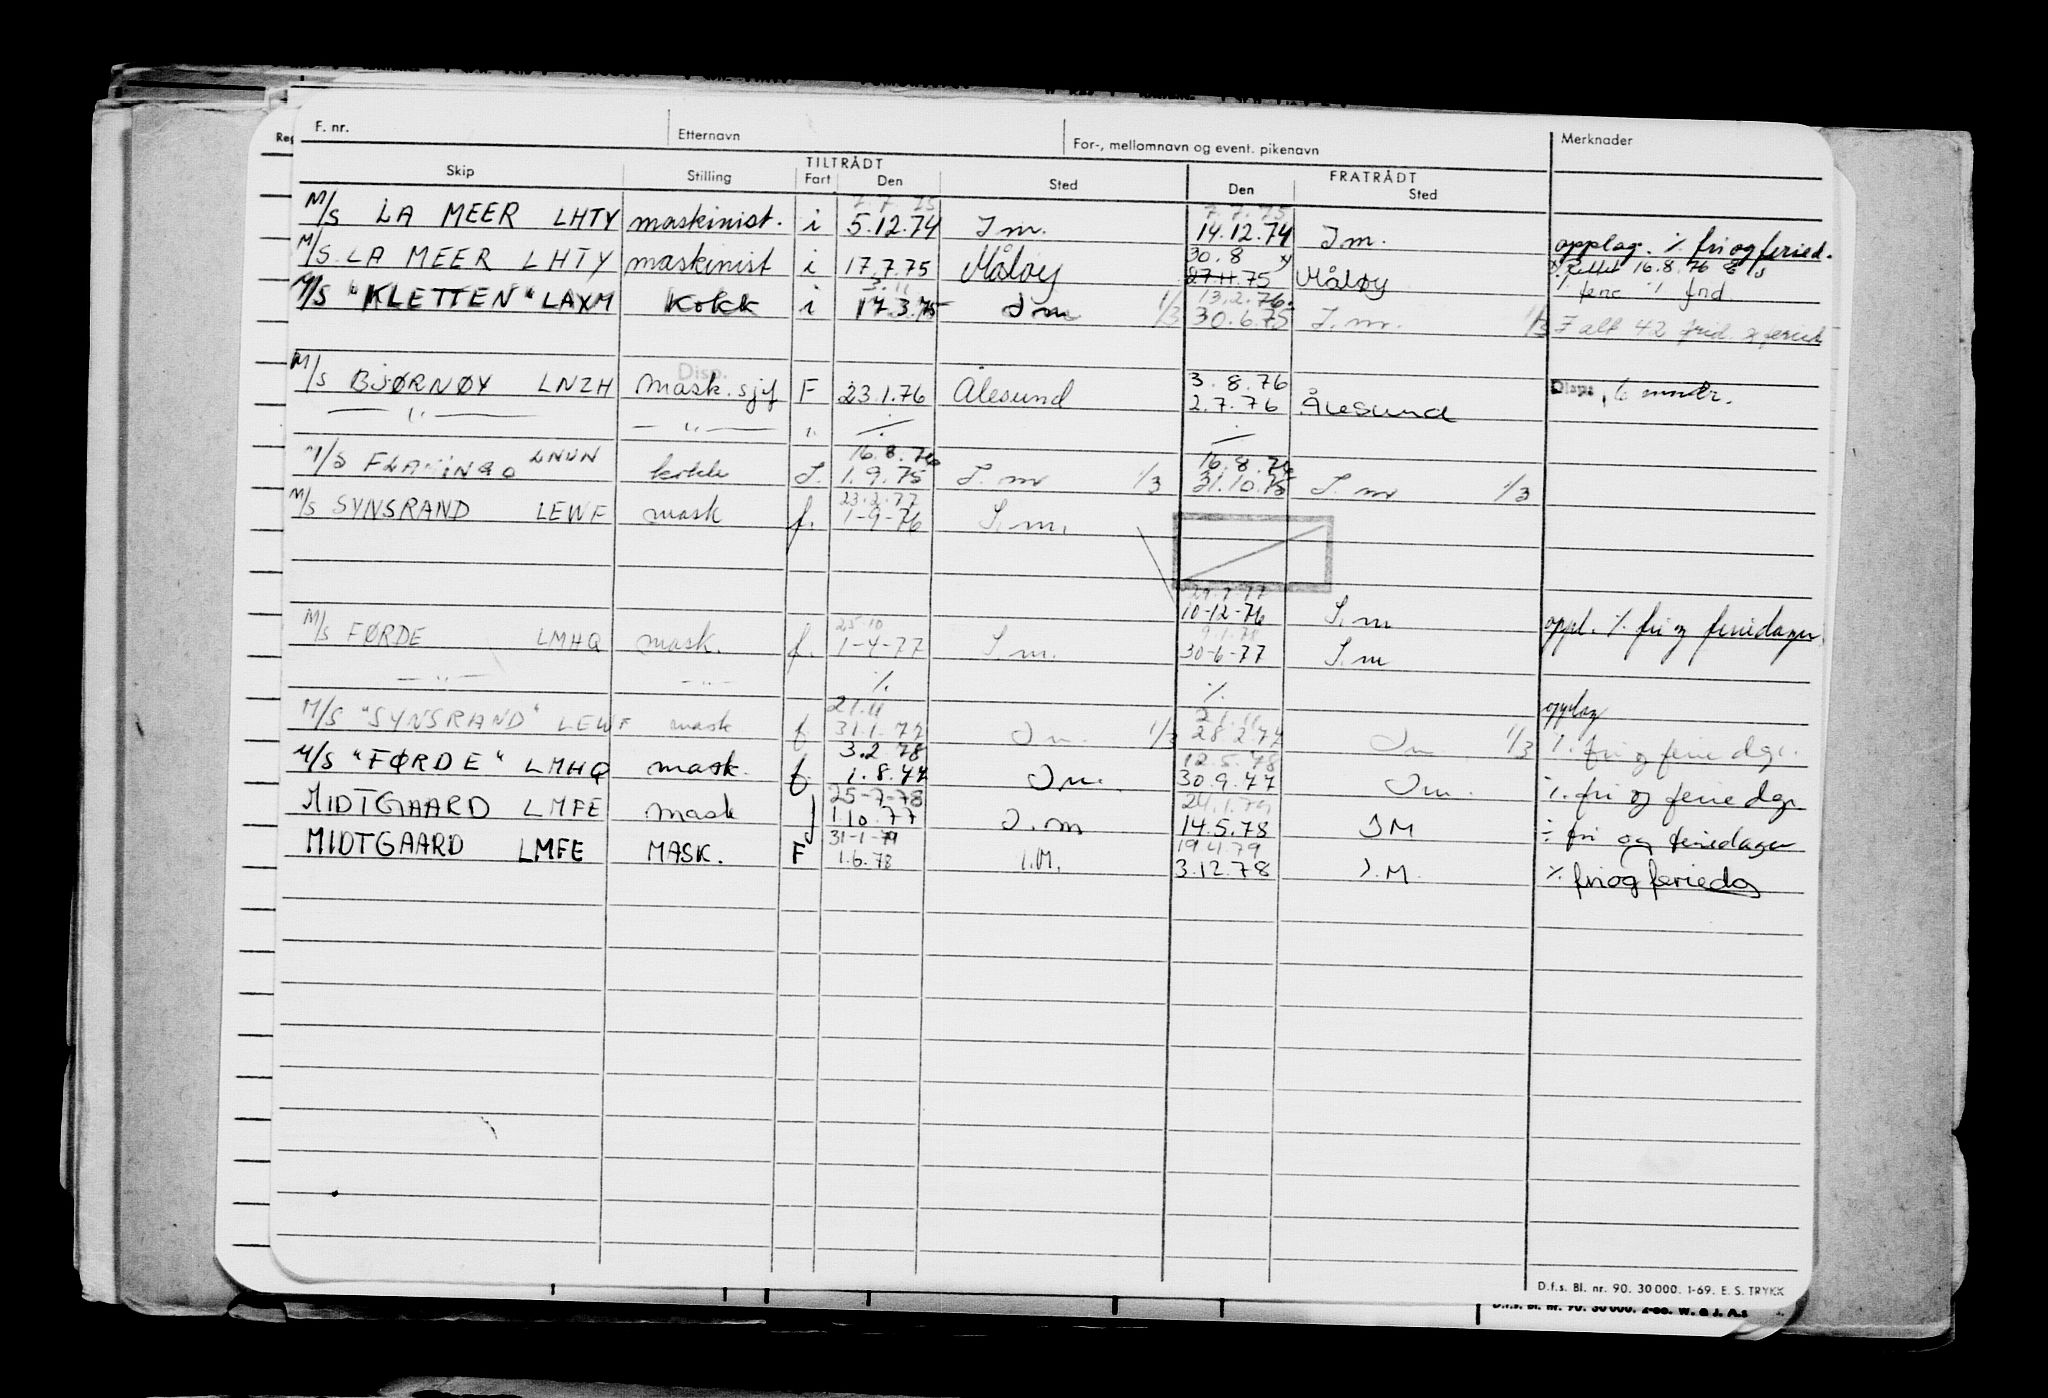 F. nr. Etternavn For-, mellomnavn og event. pikenavn Merknader
Reg
TILTRÅDT FRATRÅDT
Skip Stilling Fart Den Sted Den Sted
7.7.75 7.7.75
M/S LA MEER LHTY maskinist. i 5.12.74 I m. 14.12.74 I m. opplag. % fri og feried.
30.8 x) x) Rettet 16.8.76
M/S. LA MEER LHTY maskinist i 17.7.75 Måløy 27.11.75 Måløy % ferie % frid
3.11 13.2.76.
M/S "KLETTEN" LAXM Kokk i 17.3.75 I m 1/3 30.6.75 I. m. 1/3 I alt 42 frid. og feried
Disp. 3.8.76
M/S BJØRNØY LNZH mask. sjf F 23.1.76 Ålesund 2.7.76 Ålesund Disp. 6 mndr.
— " — — " — " ./. ./.
16.8.76 16.8.76
M/S FLAMINGO LNUN kokk I. 1.9.75 I. m 1/3 31.10.75 I. m 1/3
23.2.77
M/S SYNSRAND LEWF mask f. 1-9-76 I. m.
10-12-76 I. m oppl. % fri og feriedager.
25.10 9.1.78
M/S FØRDE LMHQ mask. f. 1-4-77 I. m. 30-6-77 I. m
— " — — " — % %
21.11 21.11 opplag
M/S "SYNSRAND" LEWF mask f 31.1.77 I m. 1/3 28.2.77 I m. 1/3 %. fri og ferie dgr.
3.2.78 12.5.78
M/S "FØRDE" LMHQ mask. f. 1.8.77 I m. 30.9.77 I m. %. fri og ferie dgr
25-7-78 24.1.79
MIDTGAARD LMFE mask f 1.10.77 I. m 14.5.78 I M ÷ fri og feriedager
31-1-79 19.4.79
MIDTGAARD LMFE MASK. F 1.6.78 I.M. 3.12.78 I. M. % fri og feriedg
D.f.s. Bl. nr. 90. 30 000. 1-69. E. S. TRYKK
D.f.s. Bl. nr. 90. 30 000. 2-66. W. & J. A.s